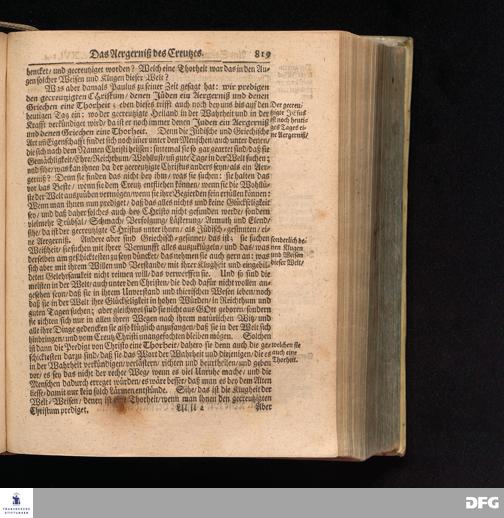 Das Aergerniß des Creutzes. 819
hencket/ und gecreutziget worden? Welch eine Thorheit war das in den Au-
gen solcher Weisen und Klugen dieser Welt?
Was aber damals Paulus zu seiner Zeit gesagt hat: wir predigen
den gecreutzigten Christum/ denen Jüden ein Aergerniß und denen
Griechen eine Thorheit; eben dieses trifft auch noch bey uns biß auf den
heutigen Tag ein: wo der gecreutzigte Heiland in der Wahrheit und in der
Krafft verkündiget wird/ da ist er noch immer denen Juden ein Aergerniß
und denen Griechen eine Thorheit. Denn die Jüdische und Griechische
Art und Eigenschafft findet sich noch immer unter den Menschen/ auch unter denen/
die sich nach dem Namen Christi heissen: sintemal sie so gar geartet sind/ daß sie
Gemächligkeit/ Ehre/ Reichthum/ Wohllust/ und gute Tage in der Welt suchen;
und sihe/ was kan ihnen da der gecreutzigte Christus anders seyn/ als ein Aer-
gerniß? Denn sie finden das nicht bey ihm/ was sie suchen: sie halten das
vor das Beste/ wenn sie dem Creutz entfliehen können/ wenn sie die Wohllü-
ste der Welt auszuüben vermögen/ wenn sie ihre Begierden sein erfüllen können:
Wenn man ihnen nun prediget/ daß das alles nichts und keine Glückseligkeit
sey/ und daß daher solches auch bey Christo nicht gefunden werde/ sondern
vielmehr Trübsal/ Schmach/ Verfolgung/ Lästerung/ Armuth und Elend/
sihe/ da ist der gecreutzigte Christus unter ihnen/ als Jüdisch-gesinnten/ ei-
ne Aergerniß. Andere aber sind Griechisch-gesinnet/ das ist: sie suchen
Weißheit/ sie suchen mit ihrer Vernunfft alles auszuklügeln/ und das/ was
derselben am geschicktesten zu seyn düncket/ das nehmen sie auch gern an: was
sich aber mit ihrem Willen und Verstande/ mit ihrer Klugheit und eingebil-
deten Gelehrsamkeit nicht reimen will/ das verwerffen sie. Und so sind die
meisten in der Welt/ auch unter den Christen/ die doch dafür nicht wollen an-
gesehen seyn/ daß sie in ihrem Unverstand und thierischen Wesen leben/ noch
daß sie in der Welt ihre Glückseligkeit in hohen Würden/ in Reichthum und
guten Tagen suchten; aber gleichwol sind sie nicht aus GOtt geboren/ sondern
sie richten sich nur in allen ihren Wegen nach ihrem natürlichen Witz/ und
alle ihre Dinge gedencken sie also klüglich anzufangen/ daß sie in der Welt sich
hindringen/ und vom Creutz Christi unangefochten bleiben mögen. Solchen
ist dann die Predigt von Christo eine Thorheit/ dahero sie denn auch die ge-
schicktesten darzu sind/ daß sie das Wort der Wahrheit und diejenigen/ die es
in der Wahrheit verkündigen/ verlästern/ richten und beurtheilen/ und geben
vor/ es sey das nicht der rechte Weg/ wenn es viel Unruhe mache/ und die
Menschen dadurch erreget würden/ es wäre besser/ daß man es bey dem Alten
liesse/ damit nur kein solch Lärmen entstünde. Sihe/ das ist die Klugheit der
Welt-Weisen/ denen ist eine Thorheit/ wenn man ihnen den gecreutzigten
Christum prediget.
Aber
Der gecreu-
tzigte JEsus
ist noch heuti-
ges Tages ei-
ne Aergerniß/
sonderlich de-
nen Klugen
und Weisen
dieser Welt/
welchen sie
auch eine
Thorheit.
FRANCKESCHE
STIFTUNGEN
DFG